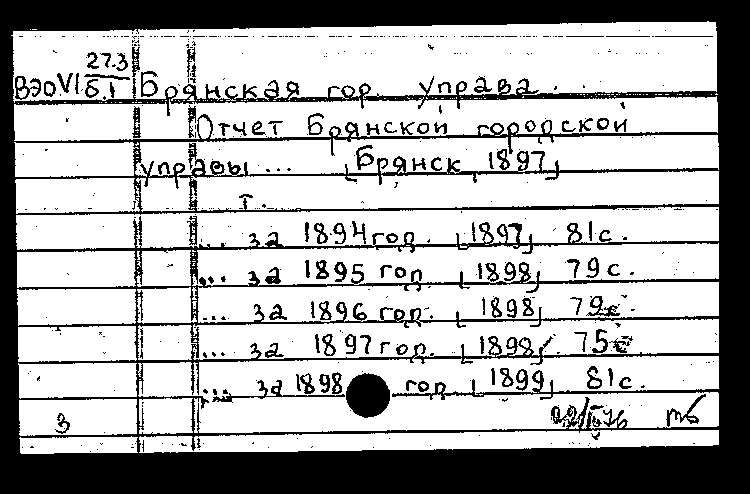 27.3
ВЭО VI Б.1 Брянская гор. управа.
Отчет Брянской городской
управы ... [Брянск, 1897]
т.
... за 1894 год. [1897] 81с.
... за 1895 год [1898] 79с.
... за 1896 год. [1898] 79с.
... за 1897 год. [1898] 75с
... за 1898 год [1899] 81с.
3